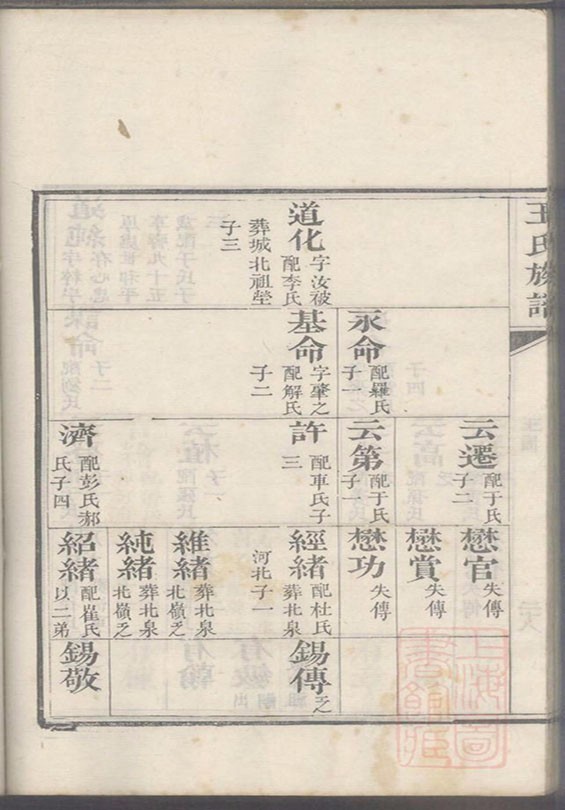 王氏族譜
道化 字汝被 配李氏 葬城北祖塋 子三
永命 配羅氏 子一
基命 字肇之 配解氏 子二
云遷 配于氏 子二
云第 配于氏 子一
許 配車氏子三
濟 配彭氏郝氏子四
懋官 失傳
懋賞 失傳
懋功 失傳
經緒 配杜氏 葬北泉河北子一
維緒 葬北泉北嶺之
純緒 葬北泉北嶺之
紹緒 配崔氏 以二弟
錫傳 之
錫敬
上海圖書館藏